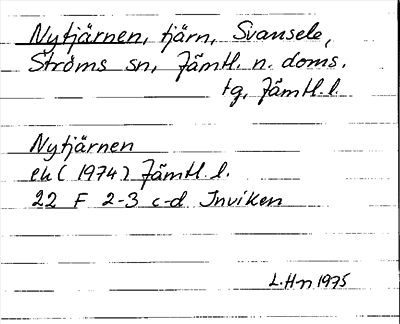 Nytjärnen, tjärn, Svansele,
Ströms sn, Jämtl. n. doms.
tg, Jämtl. l.
Nytjärnen
ek (1974) Jämtl. l.
22 F 2-3 c-d Inviken
L.H-n 1975